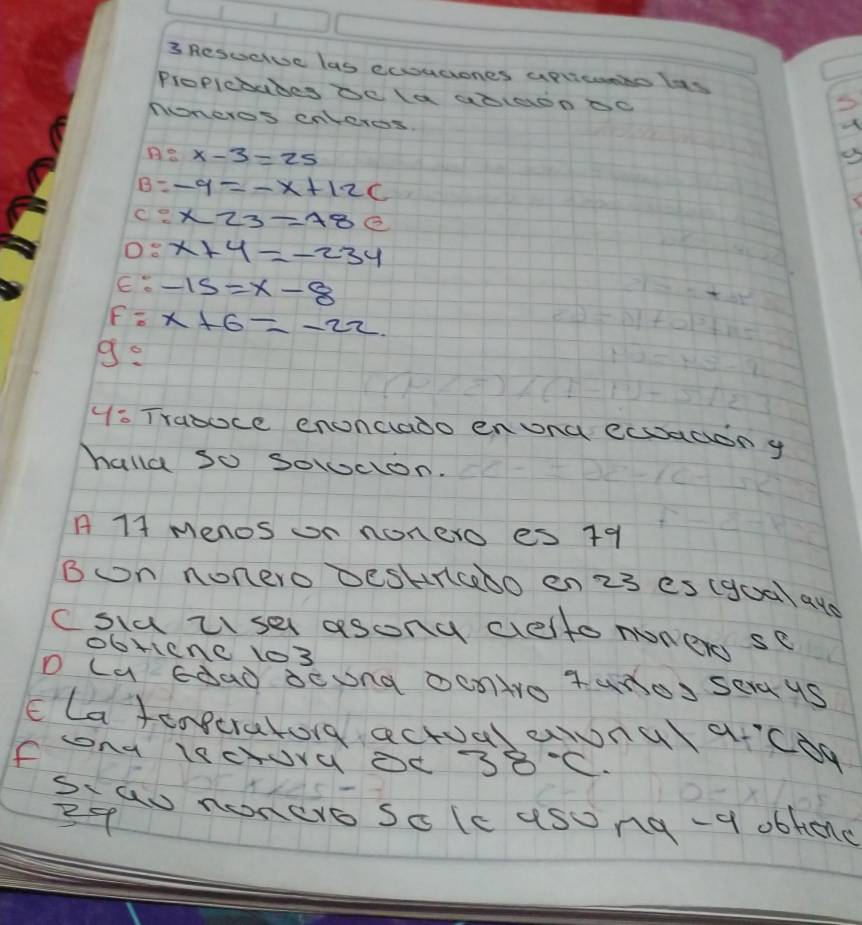 3 Resuelve las ecuaciones aplicando las
Propiedades de la adición de
números enteros.
A: x-3=25
B: -9=-x+12C
C: x23=78C
D: x+4=-234
E: -15=x-8
F: x+6=-22.
g:
4: Traduce enunciado en una ecuación y
halla so solución.
A 77 Menos un nonero es 79
B un nonero en 23 es igual a
C Si a se cierto nonero se
obtiene 103
D La Edad 7 años sera 45
E La temperatura actual 9°C da
una lectura de 38°C.
F Si a un nonero se le -9 obtiene
39